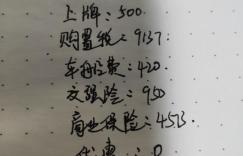 上牌：500.
购置税：9137.
车船税费：420
交强险：950
商业保险：4513